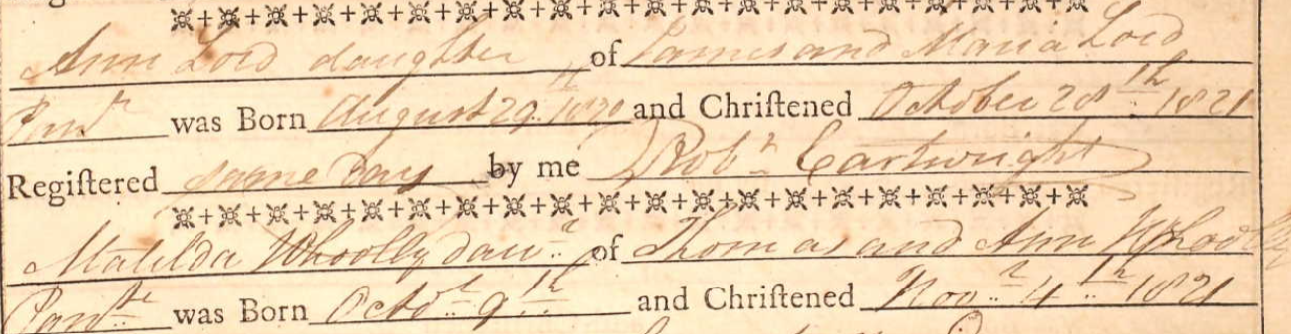 Ann Lord daughter of James and Maria Lord
was Born August 29th 1820 and Chriſtened October 28th 1821
Regiſtered same Day by me Robt Cartwright
Matilda Whoolly daur of Thomas and Ann Whoolly
was Born Octor 9th and Chriſtened Novr 4th 1821